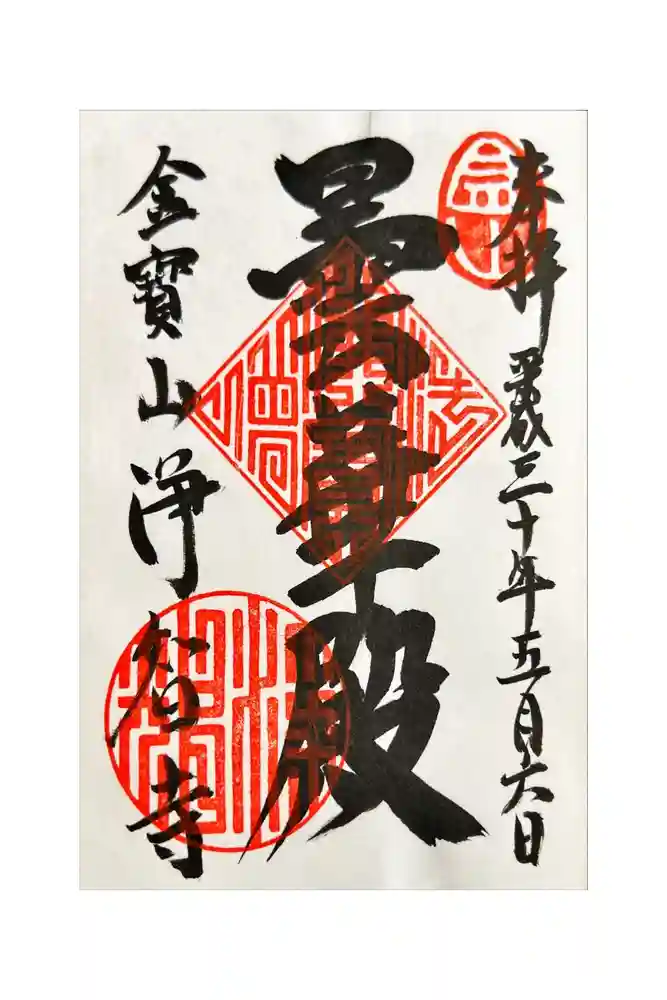 奉拝
平成三十年五月六日
曇華殿
金寶山浄智寺